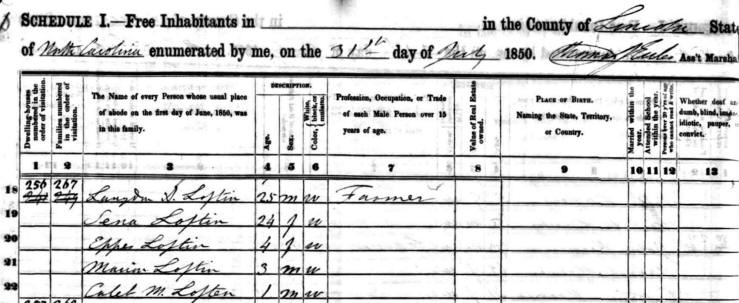 SCHEDULE I.—Free Inhabitants in in the County of Lincoln State
of North Carolina enumerated by me, on the 31st day of July 1850. Ass't Marsha
Dwelling-houses numbered in the order of visitation.
Families numbered in the order of visitation.
The Name of every Person whose usual place of abode on the first day of June, 1850, was in this family.
DESCRIPTION.
Age.
Sex.
Color, White, black, or mulatto.
Profession, Occupation, or Trade of each Male Person over 15 years of age.
Value of Real Estate owned.
PLACE OF BIRTH.
Naming the State, Territory, or Country.
Married within the year.
Attended School within the year.
Whether deaf a dumb, blind, in idiotic, pauper, convict.
1 2 3 4 5 6 7 8 9 10 11 12 13
18 256 267 Langdon S. Loftin 25 m w Farmer
19 Sena Loftin 24 f w
20 Eppes Loftin 4 f w
21 Marion Loftin 3 m w
22 Calet M. Loften 1 m w